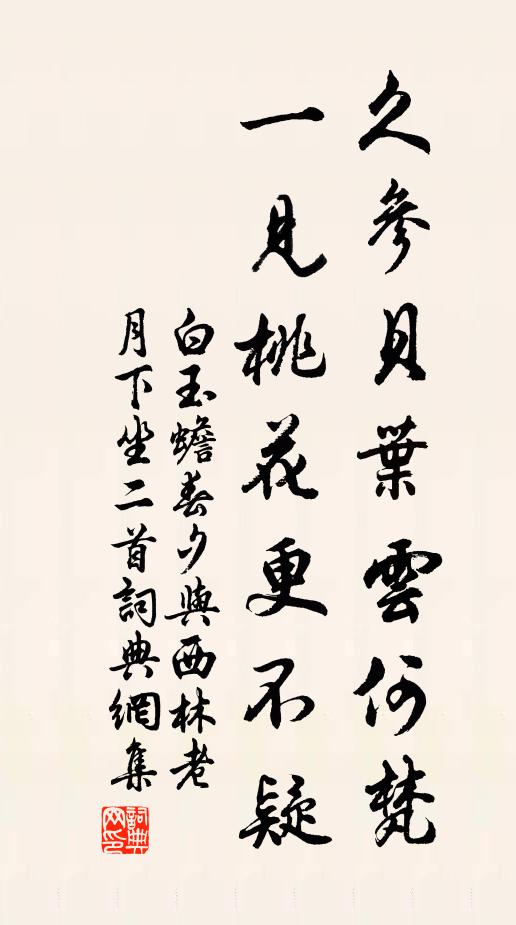 久參貝葉雲何梵
一見桃花更不疑
白玉蟾春夕與西林老
月下坐二首詞典網集
詞典
网印